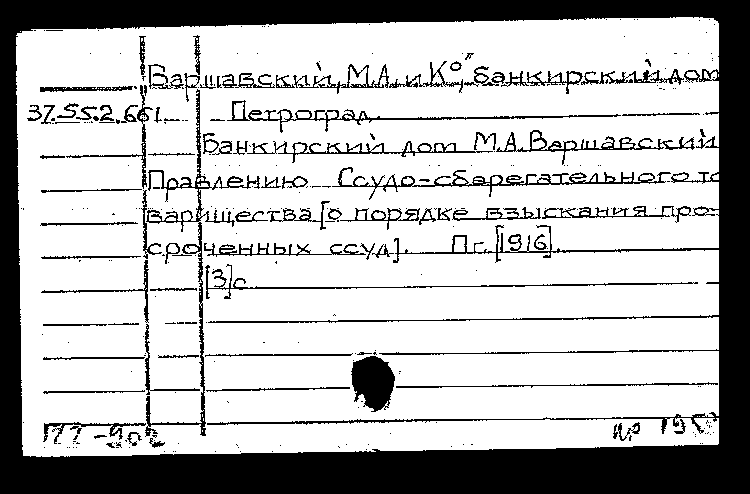 Варшавский, М.А. и К°", банкирский дом
37.55.2.661. Петроград.
Банкирский дом М.А. Варшавский
Правлению Ссудо-сберегательного то
варищества [о порядке взыскания про-
сроченных ссуд]. Пг. [1916].
[3]с
177-902